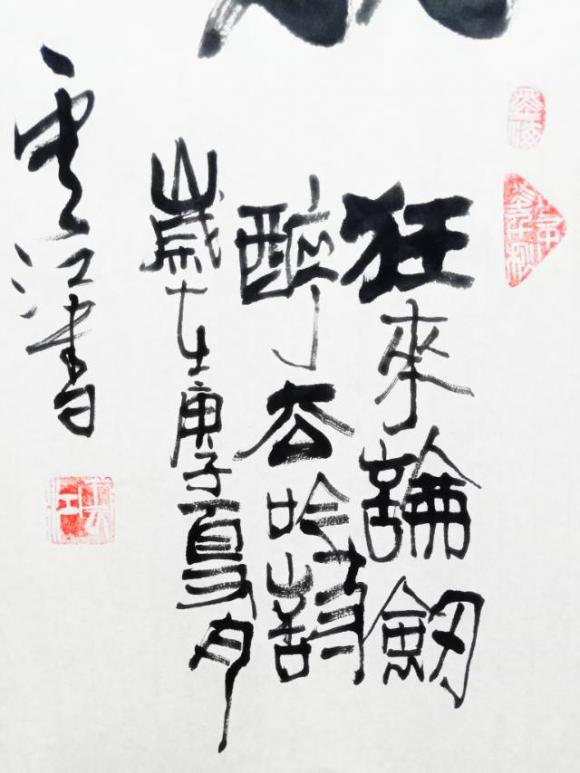 狂來論劍
醉去吟詩
歲在庚子夏月
雲江書
雲江